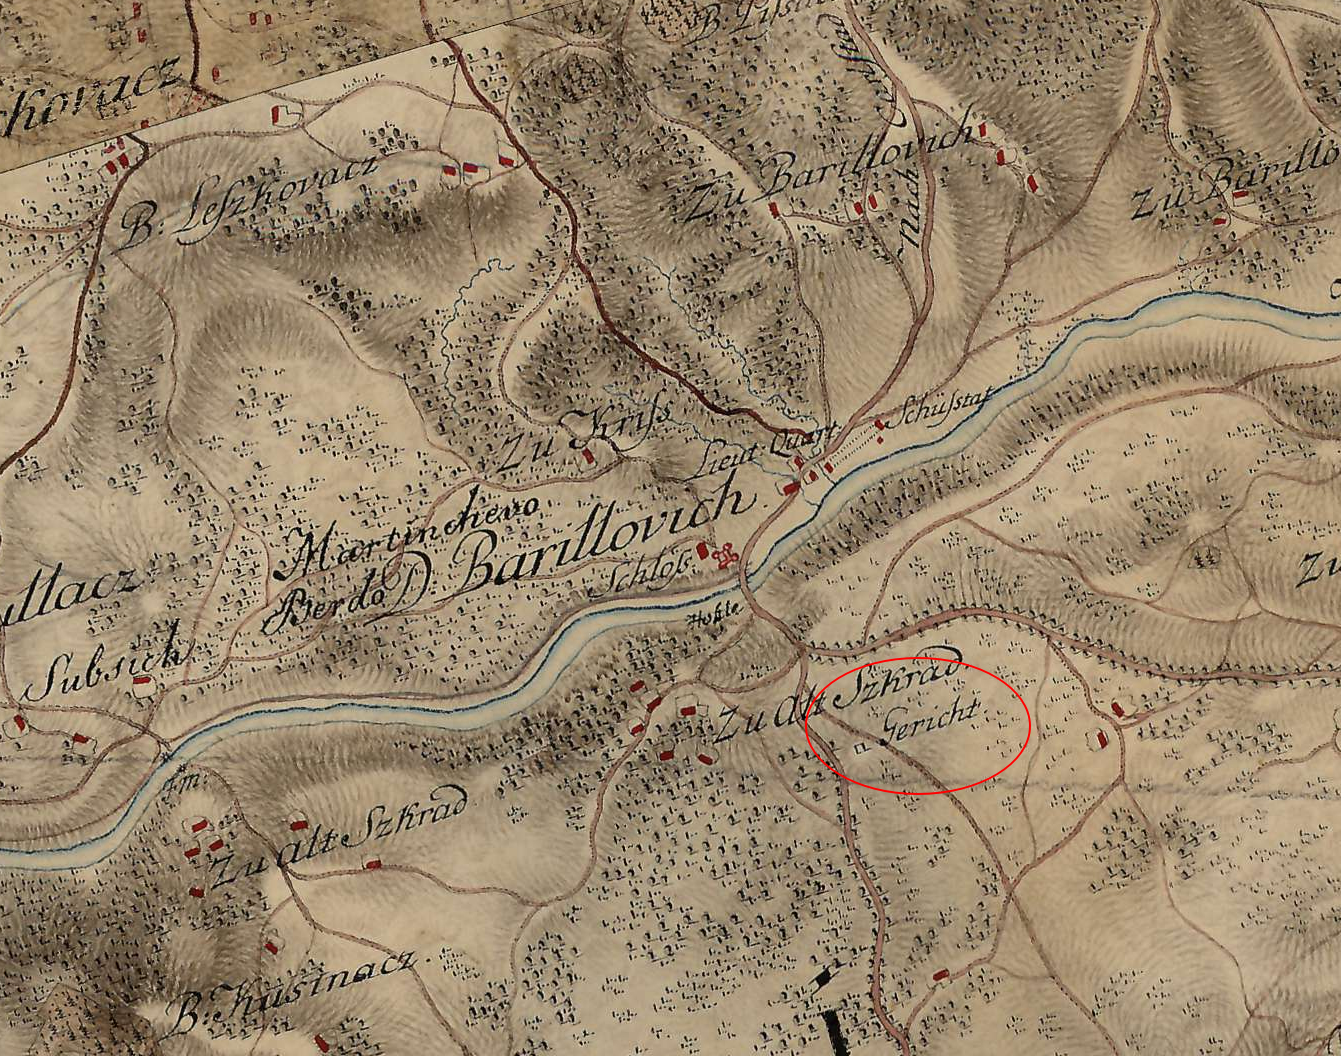 B: Leszkovacz
Zu Barillovich
Nach
Zu Barillo
Zu Kriss
Lieut Quart
Schusstat
Martinchevo
Berdo
D. Barillovich
Schloss
Subsich
Zu alt Szkrad.
Gericht
Zu
Zu alt Szkrad
B: Kusinacz.